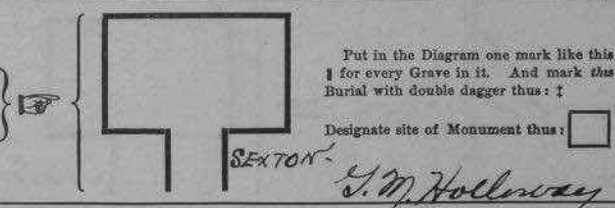 Put in the Diagram one mark like this
❚ for every Grave in it. And mark this
Burial with double dagger thus: ‡
Designate site of Monument thus:
SEXTON-
G. M. Holloway